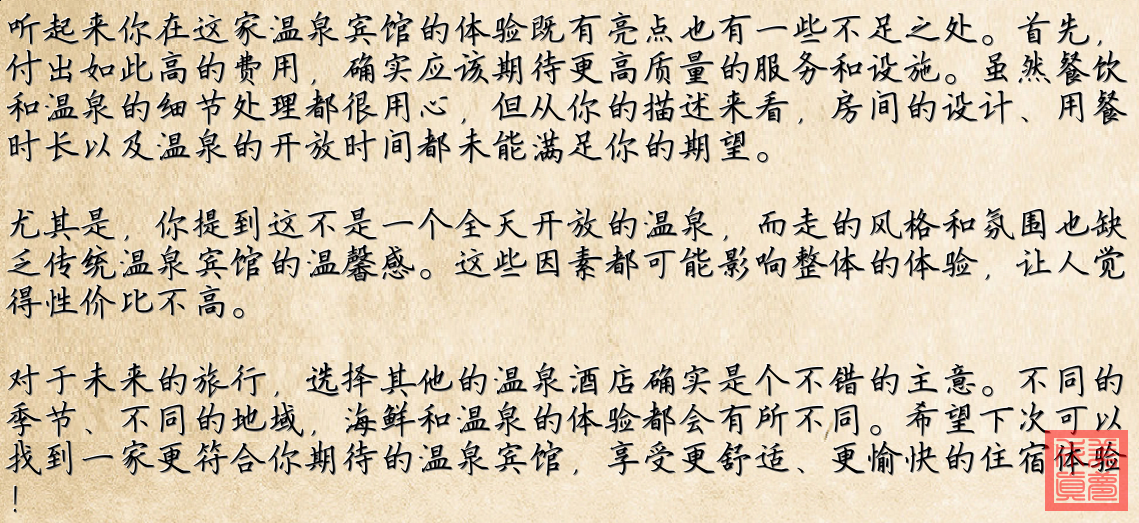 听起来你在这家温泉宾馆的体验既有亮点也有一些不足之处。首先，
付出如此高的费用，确实应该期待更高质量的服务和设施。虽然餐饮
和温泉的细节处理都很用心，但从你的描述来看，房间的设计、用餐
时长以及温泉的开放时间都未能满足你的期望。
尤其是，你提到这不是一个全天开放的温泉，而走的风格和氛围也缺
乏传统温泉宾馆的温馨感。这些因素都可能影响整体的体验，让人觉
得性价比不高。
对于未来的旅行，选择其他的温泉酒店确实是个不错的主意。不同的
季节、不同的地域，海鲜和温泉的体验都会有所不同。希望下次可以
找到一家更符合你期待的温泉宾馆，享受更舒适、更愉快的住宿体验
！